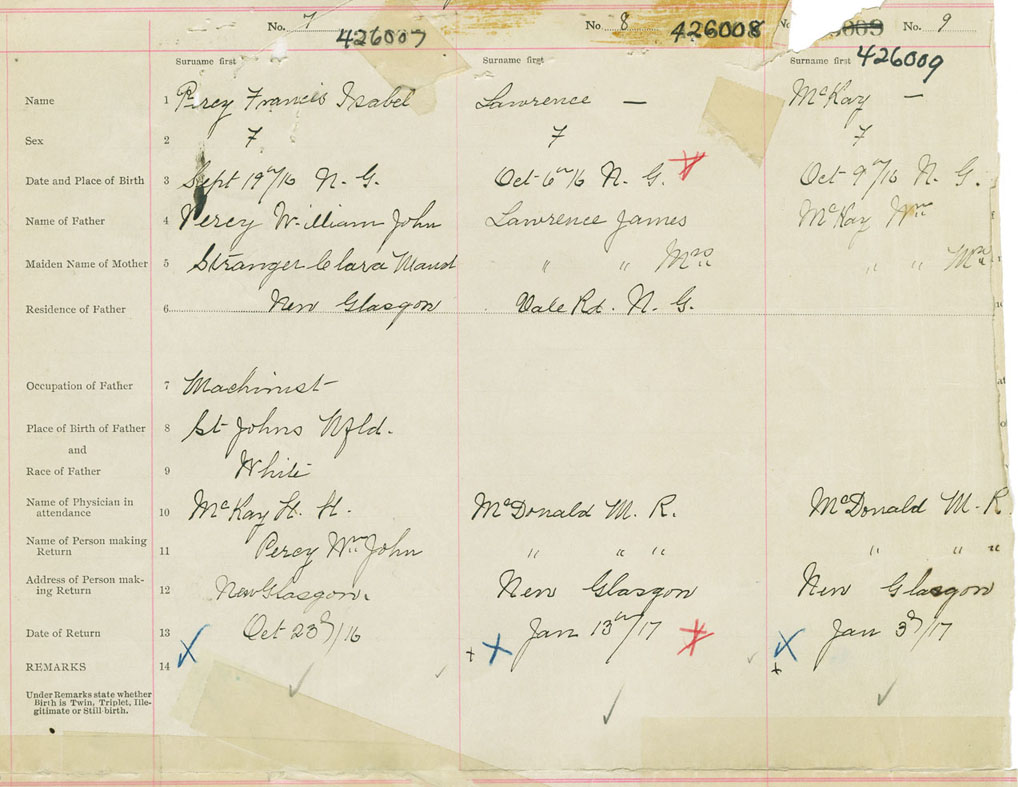 No. 7 No. 8 No. 9
426007 426008 009 426009
Surname first Surname first Surname first
Name 1 Percy Francis Isabel Lawrence — McKay —
Sex 2 F F F
Date and Place of Birth 3 Sept 19th/16 N. G. Oct 6th 16 N. G. Oct 9th/16 N. G.
Name of Father 4 Percy William John Lawrence James McKay Wm
Maiden Name of Mother 5 Stranger Clara Maud " " Mrs " " Mrs
Residence of Father 6 New Glasgow Vale Rd. N. G.
Occupation of Father 7 Machinist
Place of Birth of Father 8 St Johns Nfld.
and
Race of Father 9 White
Name of Physician in
attendance 10 McKay H. H. McDonald M. R. McDonald M. R
Name of Person making
Return 11 Percy Wm John " " " " " "
Address of Person mak-
ing Return 12 New Glasgow. New Glasgow New Glasgow
Date of Return 13 Oct 23rd/16 Jan 13th/17 Jan 3rd/17
REMARKS 14
Under Remarks state whether
Birth is Twin, Triplet, Ille-
gitimate or Still-birth.